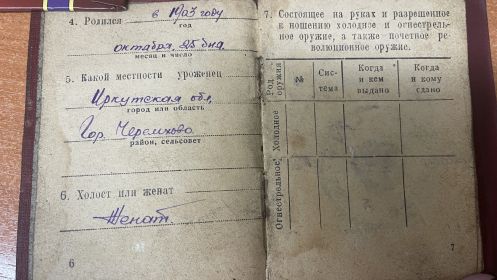 4. Родился в 1903 году
год
октября, 25 дня.
месяц и число
5. Какой местности уроженец
Иркутская обл,
город или область
Гор. Черемхово
район, сельсовет
6. Холост или женат
Женат.
6
7. Состоящее на руках и разрешенное
к ношению холодное и огнестрель-
ное оружие, а также почетное ре-
волюционное оружие.
Род оружия
№
Сис-
тема
Когда
и кем
выдано
Когда
и кому
сдано
Холодное
Огнестрельное
7